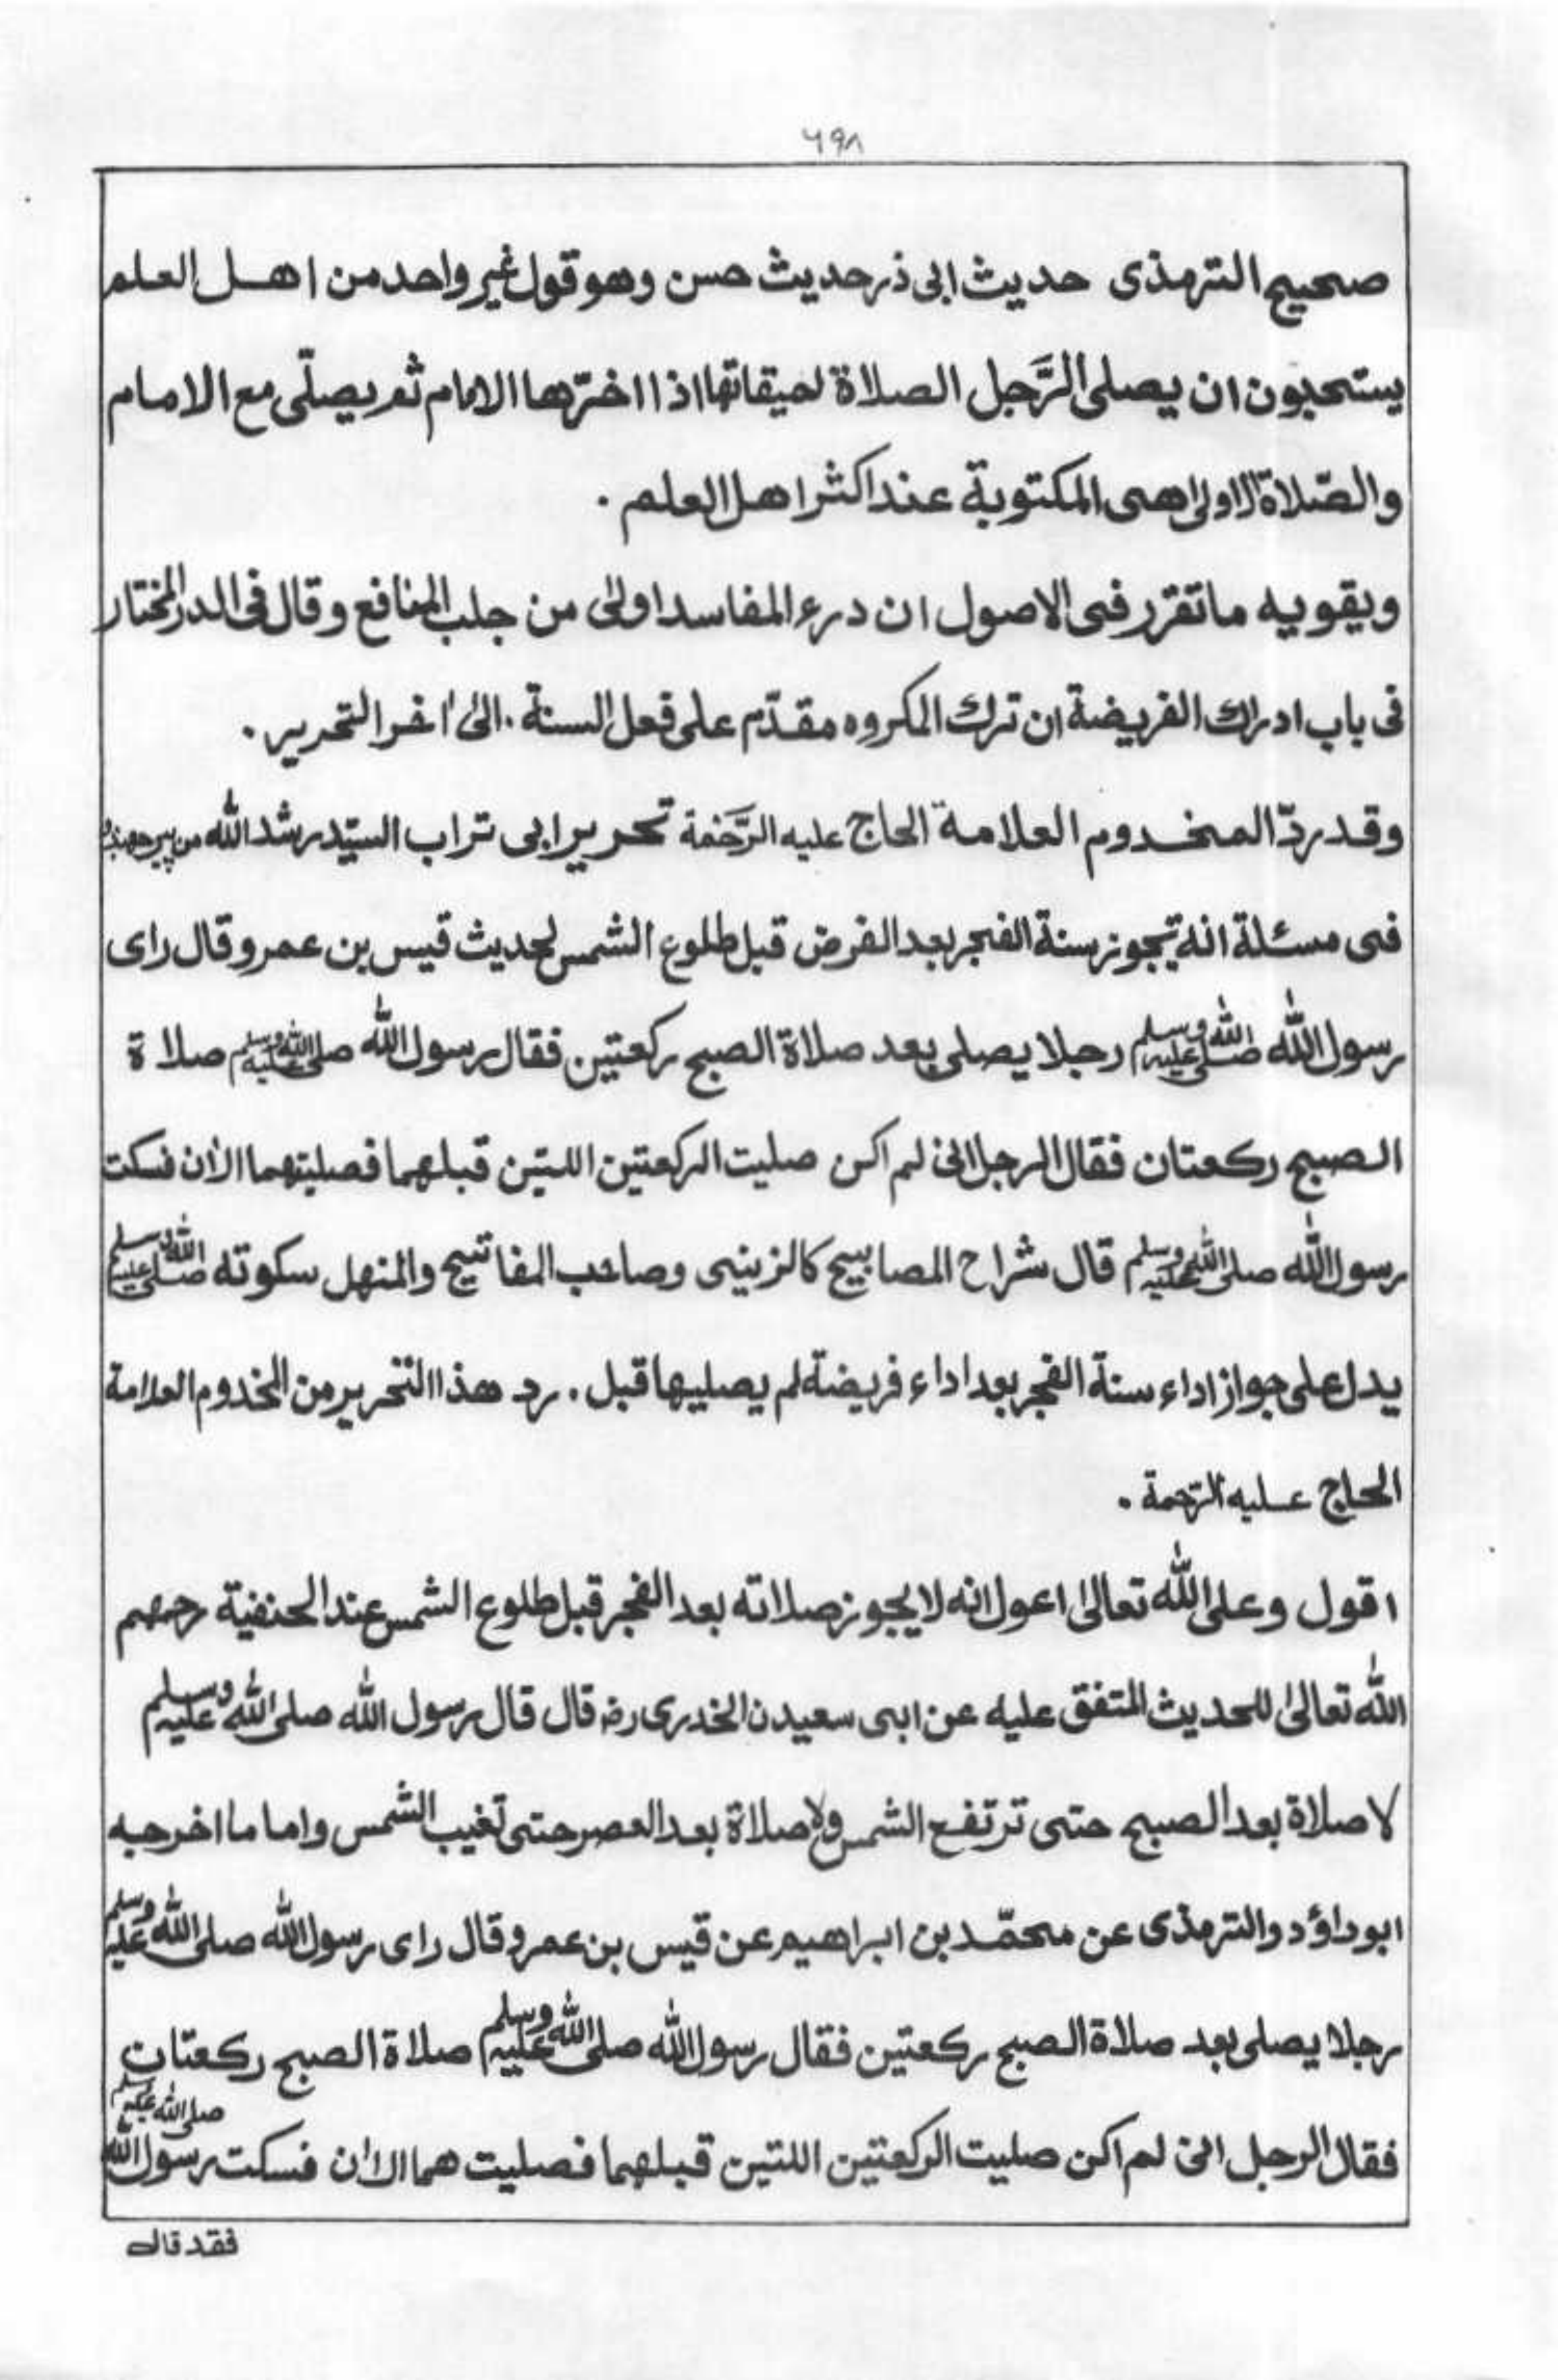 ٦٩٨
صحيح الترمذى حديث ابى ذر حديث حسن وهو قول غير واحد من اهل العلم
يستحبون ان يصلى الرَّجل الصلاة لميقاتها اذا اخّرها الامام ثم يصلّى مع الامام
والصّلاة الاولىٰ هى المكتوبة عند اكثر اهل العلم ۔
ويقويه ما تقرّر فى الاصول ان درء المفاسد اولىٰ من جلب المنافع وقال فى الدر المختار
فى باب ادراك الفريضة ان ترك المكروه مقدّم على فعل السنة ۔ الىٰ اٰخر التحرير ۔
وقد ردّ المخدوم العلامة الحاج عليه الرَّحْمة تحرير ابى تراب السيّد رشد الله من پير جهنڈ
فى مسئلة انه تيجوز سنة الفجر بعد الفرض قبل طلوع الشمس لحديث قيس بن عمرو قال راى
رسول الله صلى الله عليه وسلم رجلا يصلى بعد صلاة الصبح ركعتين فقال رسول الله صلى الله عليه وسلم صلاة
الصبح ركعتان فقال الرجل انى لم اكن صليت الركعتين اللتين قبلهما فصليتهما الاٰن فسكت
رسول الله صلى الله عليه وسلم قال شراح المصابيح كالزينى وصاحب المفاتيح والمنهل سكوته صلى الله عليه وسلم
يدل على جواز اداء سنة الفجر بعد اداء فريضة لم يصليها قبل ۔ رد هذا التحرير من المخدوم العلامة
الحاج عليه الرّحمة ۔
اقول وعلى الله تعالىٰ اعول انه لا يجوز صلاته بعد الفجر قبل طلوع الشمس عند الحنفية رحمهم
الله تعالىٰ للحديث المتفق عليه عن ابى سعيدن الخدرى رضہ قال قال رسول الله صلى الله عليه وسلم
لا صلاة بعد الصبح حتى ترتفع الشمس ولا صلاة بعد العصر حتى تغيب الشمس واما ما اخرجه
ابو داؤد والترمذى عن محمّد بن ابراهيم عن قيس بن عمرو قال راى رسول الله صلى الله عليه وسلم
رجلا يصلى بعد صلاة الصبح ركعتين فقال رسول الله صلى الله عليه وسلم صلاة الصبح ركعتان
فقال الرجل انى لم اكن صليت الركعتين اللتين قبلهما فصليت هما الاٰن فسكت رسول الله صلى الله عليه وسلم
فقد قال